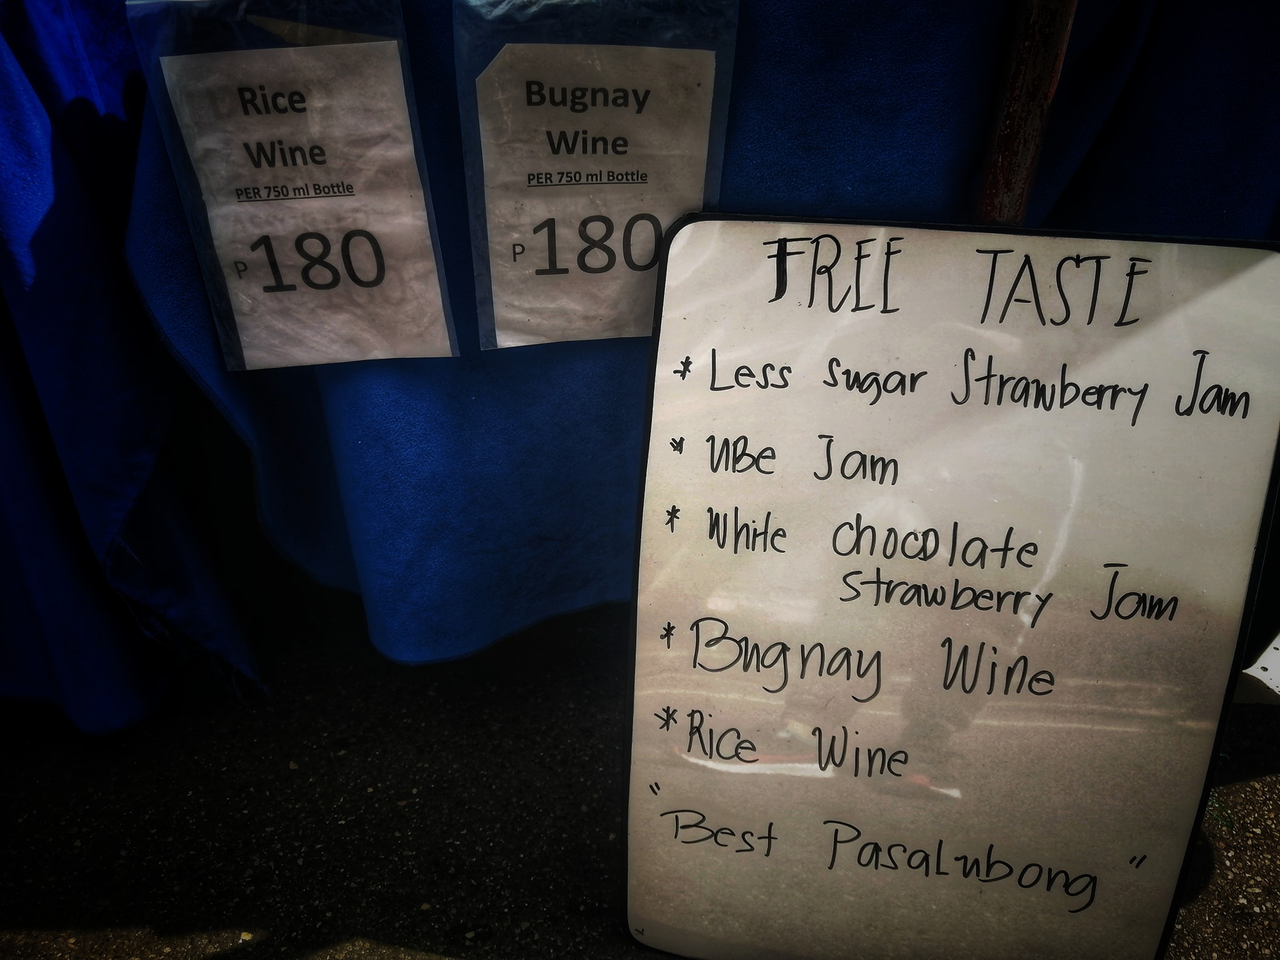 Rice
Wine
PER 750 ml Bottle
P180
Bugnay
Wine
PER 750 ml Bottle
P180
FREE TASTE
* Less sugar Strawberry Jam
* UBe Jam
* White chocolate
strawberry Jam
* Bugnay Wine
* Rice Wine
"Best Pasalubong"